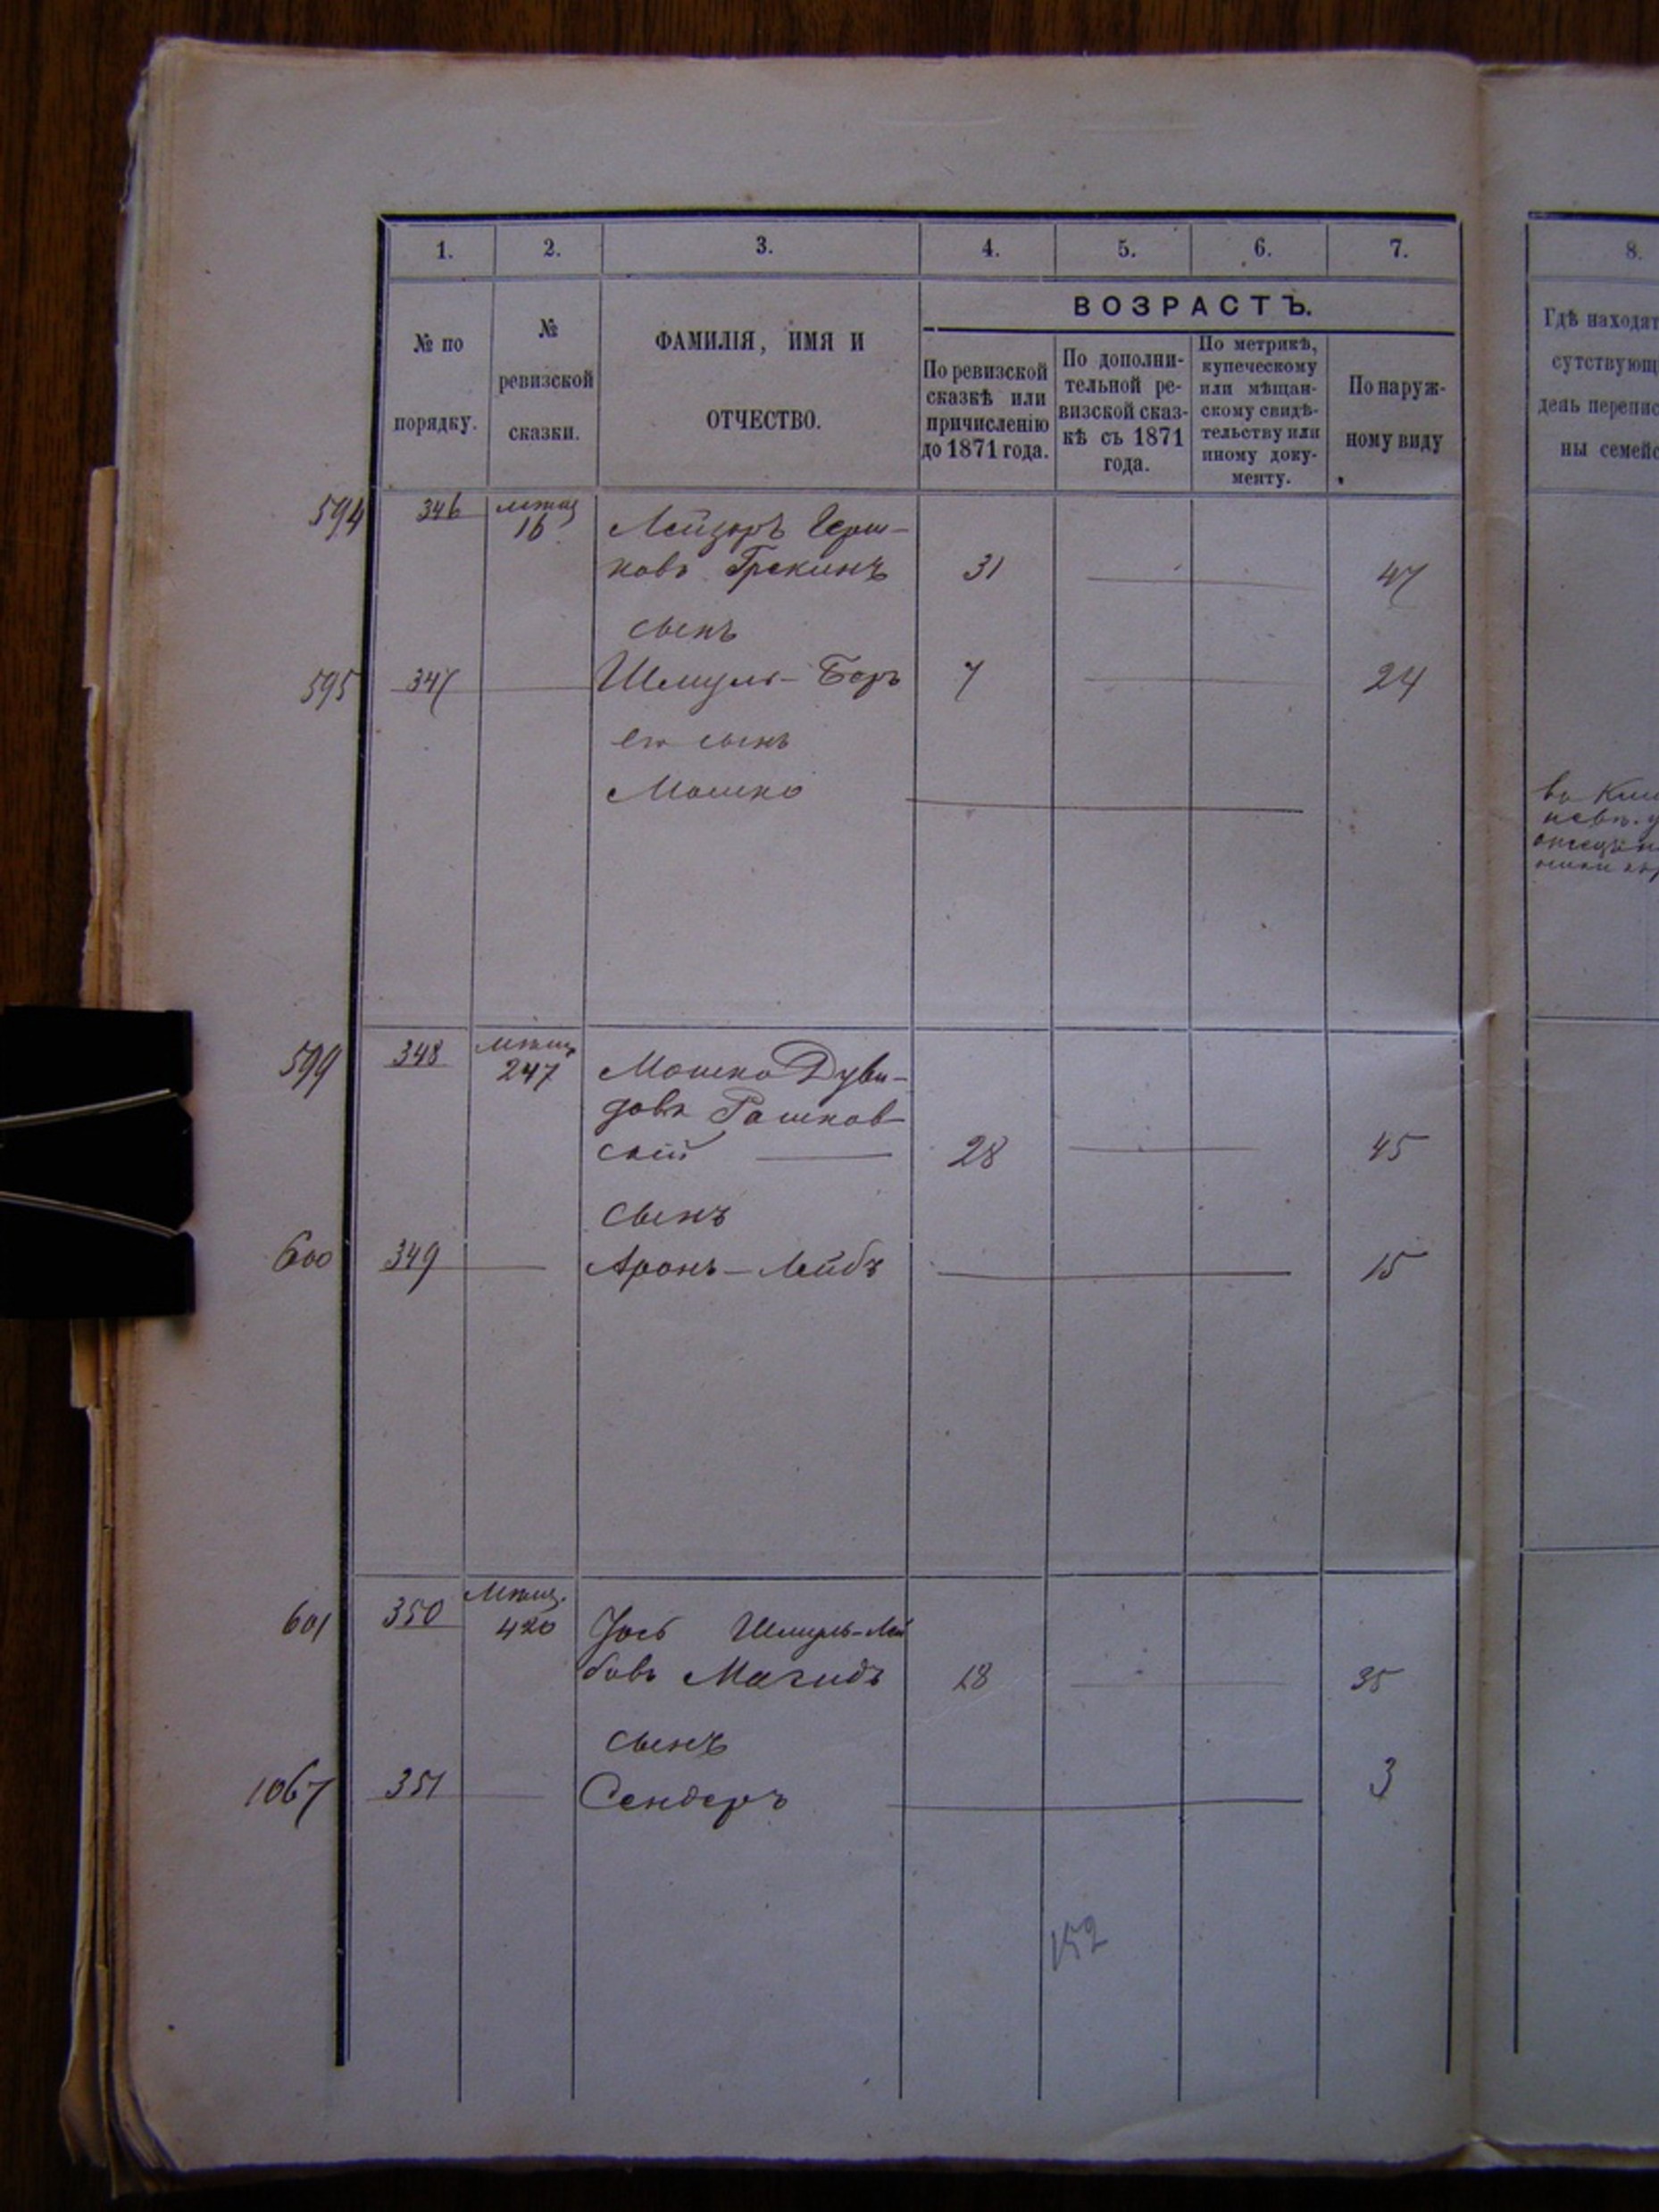 1. 2. 3. 4. 5. 6. 7. 8.
№ по порядку.
№ ревизской сказки.
ФАМИЛІЯ, ИМЯ И
ОТЧЕСТВО.
ВОЗРАСТЪ.
По ревизской
сказкѣ или
причисленію
до 1871 года.
По дополни-
тельной ре-
визской сказ-
кѣ съ 1871
года.
По метрикѣ,
купеческому
или мѣщан-
скому свидѣ-
тельству или
иному доку-
менту.
По наруж-
ному виду
Гдѣ находят
сутствующ
день перепис
ны семейс
594 346 мѣщ
16 Лейзоръ Герш-
ковъ Грекинъ 31 47
сынъ
595 347 Шмуль-Беръ 7 24
его сынъ
Мошко
599 348 мѣщ
247 Мошко Дуви-
довъ Рашков-
скій 28 45
сынъ
600 349 Аронъ-Лейбъ 15
601 350 Мѣщ.
420 Іось Шмуль-Лей
бовъ Магидъ 18 35
сынъ
1067 351 Сендеръ 3
152